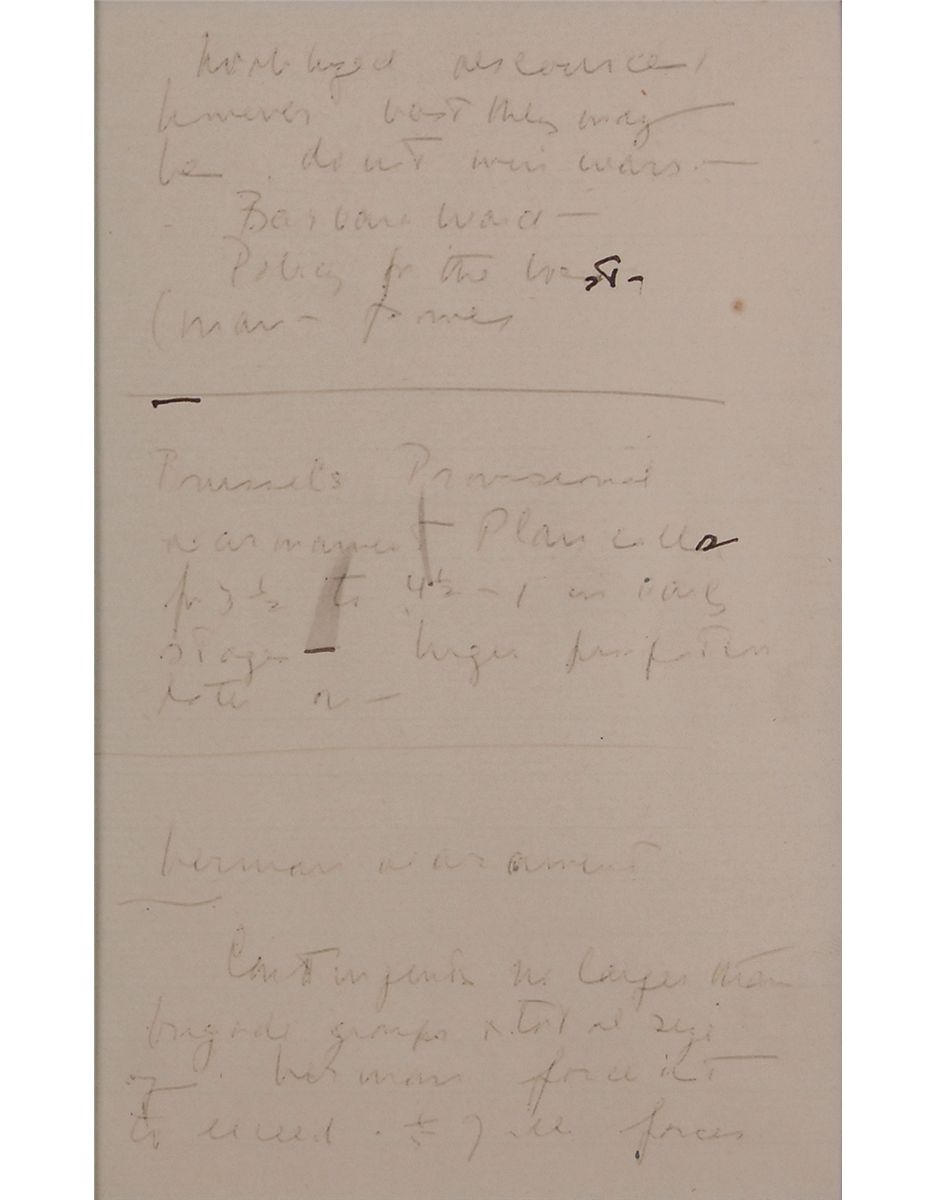 however vast they may
be don't win wars —
- Barbara Ward —
Policy for the West -
(man-
Brussels Provisional
rearmament Plan calls
for 3 ½ to 4 ½ - 1 in early
stages — larger proportion
later on —
German rearmament
Contingents no larger than
brigade groups & total size
of German force not
to exceed 1/5 of all forces